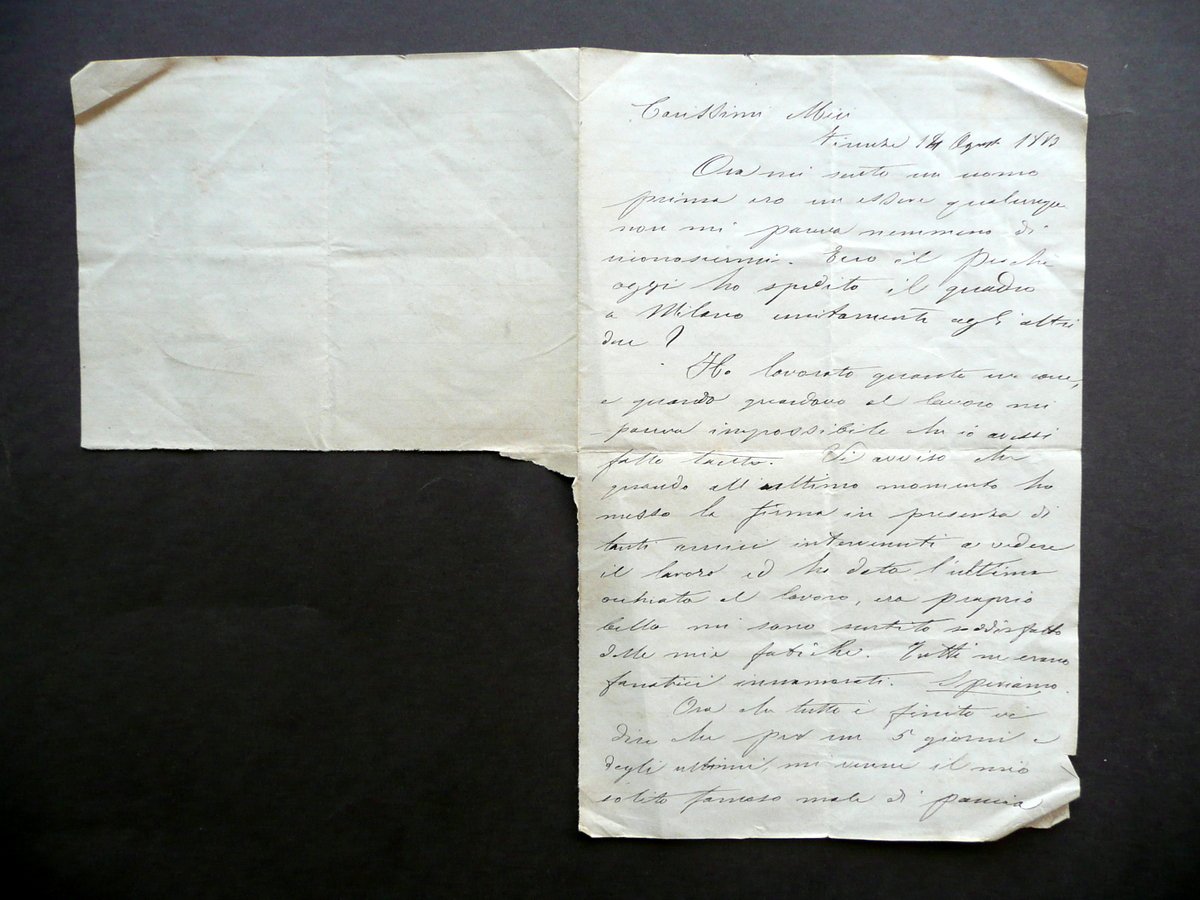 Carissimi Miei
Firenze 14 Agosto 1883
Ora mi sento un uomo
prima ero un essere qualunque
non mi pareva nemmeno di
riconoscermi. Ecco il perché
oggi ho spedito il quadro
a Milano unitamente agli altri
due
Ho lavorato quanto un cane,
e quando guardavo al lavoro mi
pareva impossibile che io avessi
fatto tanto. Vi avviso che
quando all'ultimo momento ho
messo la firma in presenza di
tanti amici intervenuti a vedere
il lavoro ed ho dato l'ultima
occhiata al lavoro, era proprio
bello mi sono sentito soddisfatto
delle mie fatiche. Tutti ne erano
fanatici innamorati. Speriamo.
Ora che tutto è finito vi
dirò che per un 5 giorni e
degli ultimi, mi venne il mio
solito famoso male di pancia